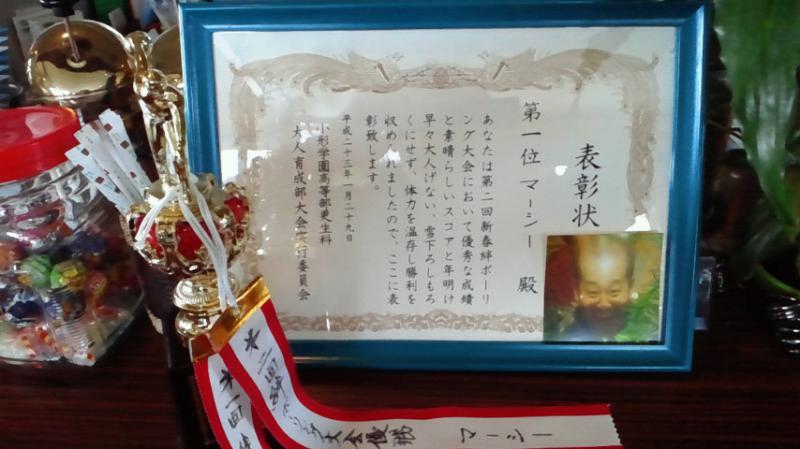 表彰状
第一位 マーシー 殿
あなたは第二回新春絆ボーリ
ング大会において優秀な成績
と素晴らしいスコアと年明け
早々大人げない、雪下ろしもろ
くにせず、体力を温存し勝利を
収められましたので、ここに表
彰致します。
平成二十三年一月二十九日
小形学園高等部更生科
大人育成部大会実行委員会
大会優勝 マーシー